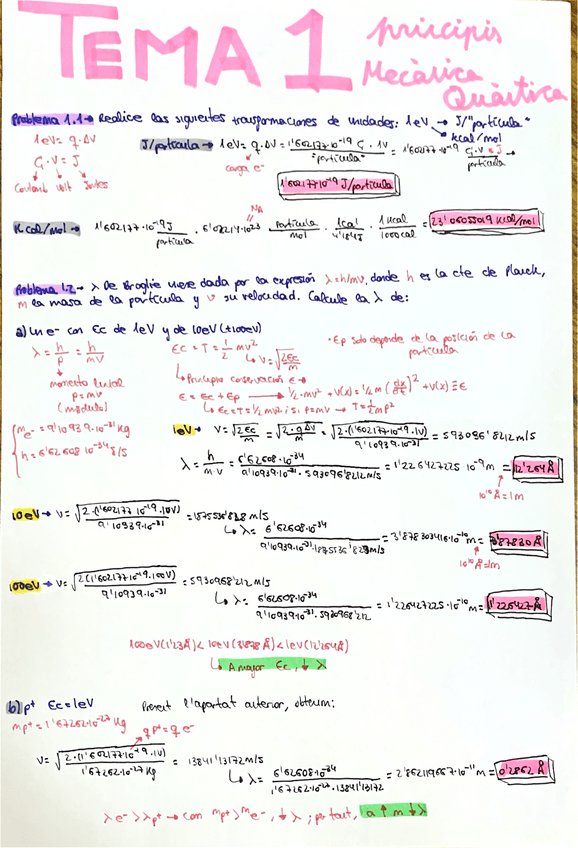 TEMA 1 principis
Mecànica
Quàntica
Problema 1.1 → Realice las siguientes transformaciones de unidades: 1eV → J/"partícula"
Kcal/mol
1eV = q·ΔV
J/partícula → 1eV = q·ΔV = 1'602177·10⁻¹⁹ C · 1V / "partícula" = 1'602177·10⁻¹⁹ C·V = J / partícula →
C·V = J
carga e⁻
Coulomb volt Joules
1'602177·10⁻¹⁹ J/partícula
NA
Kcal/mol → 1'602177·10⁻¹⁹ J / partícula · 6'02214·10²³ partícula / mol · 1cal / 4'184J · 1Kcal / 1000cal = 23'0605519 Kcal/mol
Problema 1.2 → λ De Broglie viene dada por la expresión λ=h/mv, donde h es la cte de Planck,
m la masa de la partícula y v su velocidad. Calcule la λ de:
a) Un e⁻ con Ec de 1eV y de 10eV (+100eV)
λ = h/p = h/mv
Ec = T = 1/2 mv²
↳ v = √(2Ec/m)
• Ep solo depende de la posición de la
partícula
momento lineal
p = mv
(módulo)
↳ Principio conservación E →
E = Ec + Ep → 1/2·mv² + V(x) = 1/2 m (dx/dt)² + V(x) ≡ E
↳ Ec = T = 1/2 mv² i si p = mv → T = 1/2 mp²
me⁻ = 9'10939·10⁻³¹ kg
h = 6'62608·10⁻³⁴ J/s
1eV → v = √(2Ec/m) = √(2·qΔV/m) = √(2·(1'602177·10⁻¹⁹·1V) / 9'10939·10⁻³¹) = 593096'8212 m/s
λ = h/m·v = 6'62608·10⁻³⁴ / 9'10939·10⁻³¹·593096'8212 m/s = 1'226427225·10⁻⁹ m = 12'264 Å
10¹⁰ Å = 1m
10eV → v = √(2·(1'602177·10⁻¹⁹·10V) / 9'10939·10⁻³¹) = 1875536'828 m/s
↳ λ = 6'62608·10⁻³⁴ / 9'10939·10⁻³¹·1875536'828 m/s = 3'878303416·10⁻¹⁰ m = 3'87830 Å
10¹⁰ Å = 1m
100eV → v = √(2(1'602177·10⁻¹⁹·100V) / 9'10939·10⁻³¹) = 5930968'212 m/s
↳ λ = 6'62608·10⁻³⁴ / 9'10939·10⁻³¹·5930968'212 = 1'226427225·10⁻¹⁰ m = 1'226427 Å
100eV (1'23Å) < 10eV (3'878 Å) < 1eV (12'264Å)
↳ A major Ec, ↓ λ
b) p⁺ Ec = 1eV
Prenent l'apartat anterior, obtenim:
mp⁺ = 1'67262·10⁻²⁷ Kg
q p⁺ = q e⁻
v = √(2·(1'602177·10⁻¹⁹·1V) / 1'67262·10⁻²⁷ Kg) = 13841'13172 m/s
↳ λ = 6'62608·10⁻³⁴ / 1'67262·10⁻²⁷·13841'13172 = 2'862119667·10⁻¹¹ m = 0'2862 Å
λe⁻ > λp⁺ → con mp⁺ > me⁻, ↓ λ ; per tant, a ↑ m ↓ λ